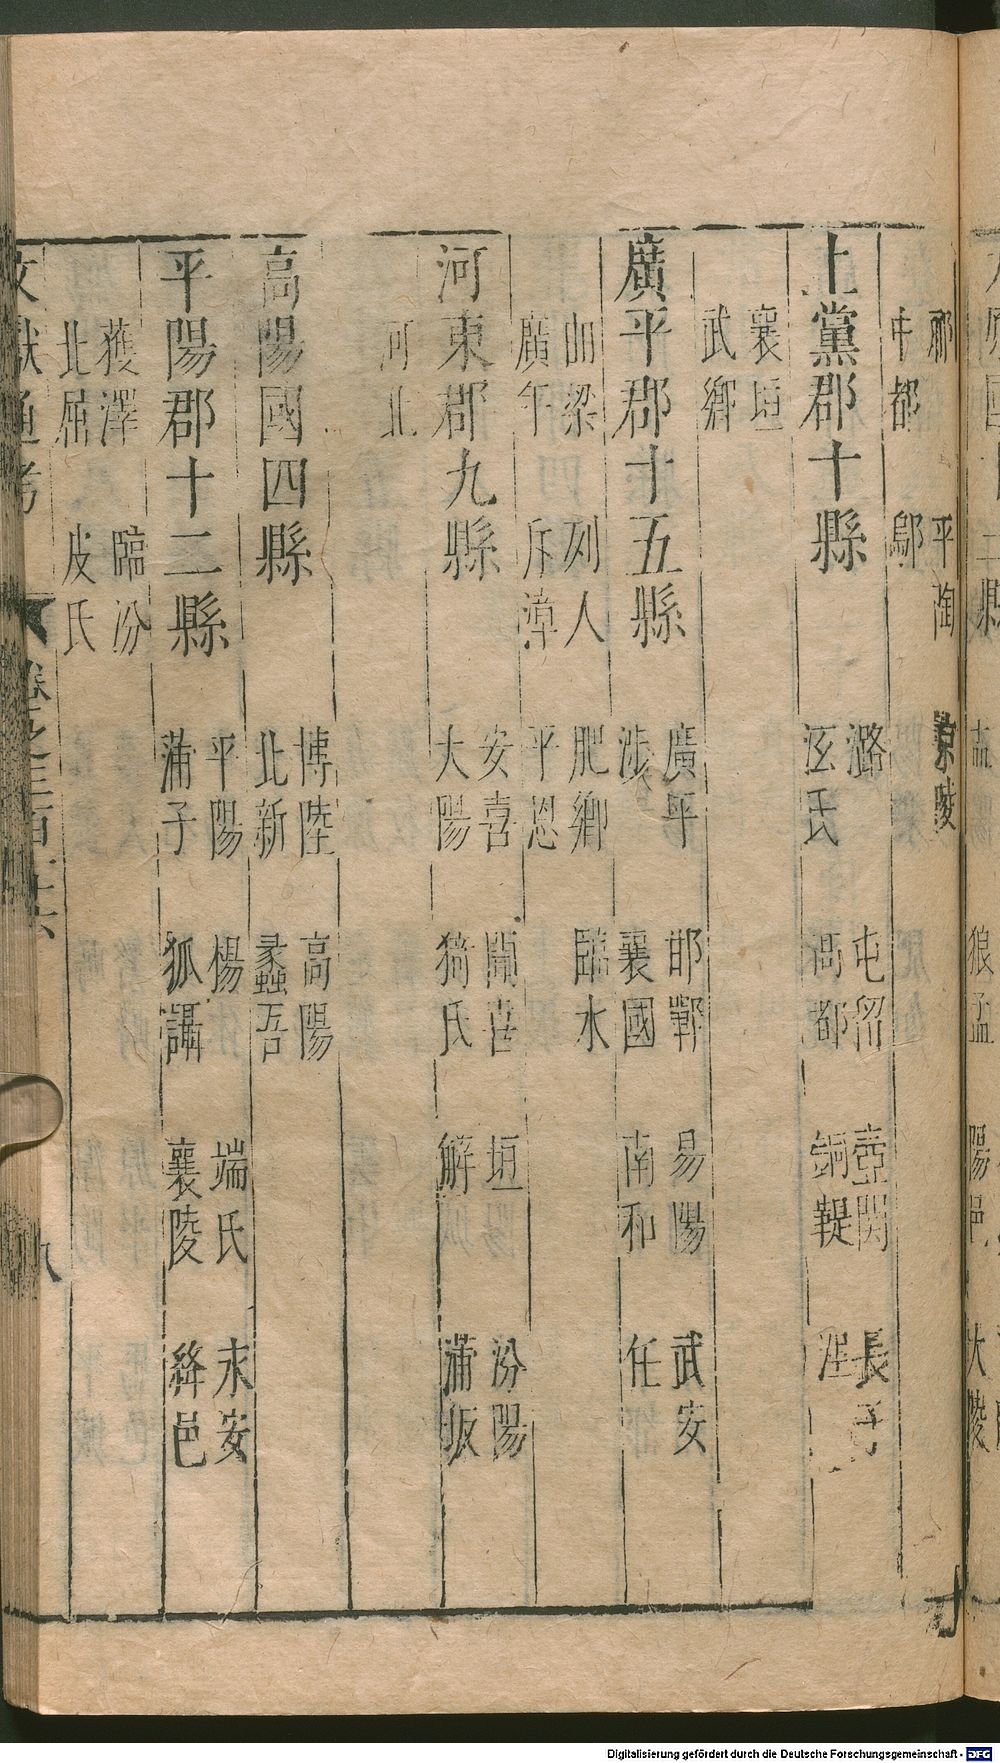 祁　平陶　京陵
中都　鄔
上黨郡十縣
潞　屯留　壺關　長子
泫氏　高都　銅鞮　涅
襄垣
武鄉
廣平郡十五縣
廣平　邯鄲　易陽　武安
涉　襄國　南和　任
曲梁　列人　肥鄉　臨水
廣年　斥漳　平恩
河東郡九縣
安喜　聞喜　垣　汾陽
大陽　猗氏　解　蒲坂
河北
高陽國四縣
博陸　高陽
北新　蠡吾
平陽郡十二縣
平陽　楊　端氏　永安
蒲子　狐讘　襄陵　絳邑
濩澤　臨汾
北屈　皮氏
文獻通考　卷之三百十六　八
Digitalisierung gefördert durch die Deutsche Forschungsgemeinschaft - DFG